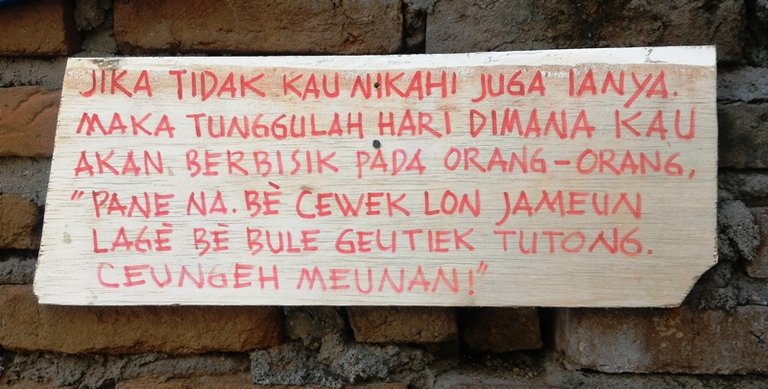 JIKA TIDAK KAU NIKAHI JUGA IANYA.
MAKA TUNGGULAH HARI DIMANA KAU
AKAN BERBISIK PADA ORANG-ORANG,
"PANE NA. BÈ CEWEK LON JAMEUN
LAGÈ BÈ BULE GEUTIEK TUTONG.
CEUNGEH MEUNAN!"